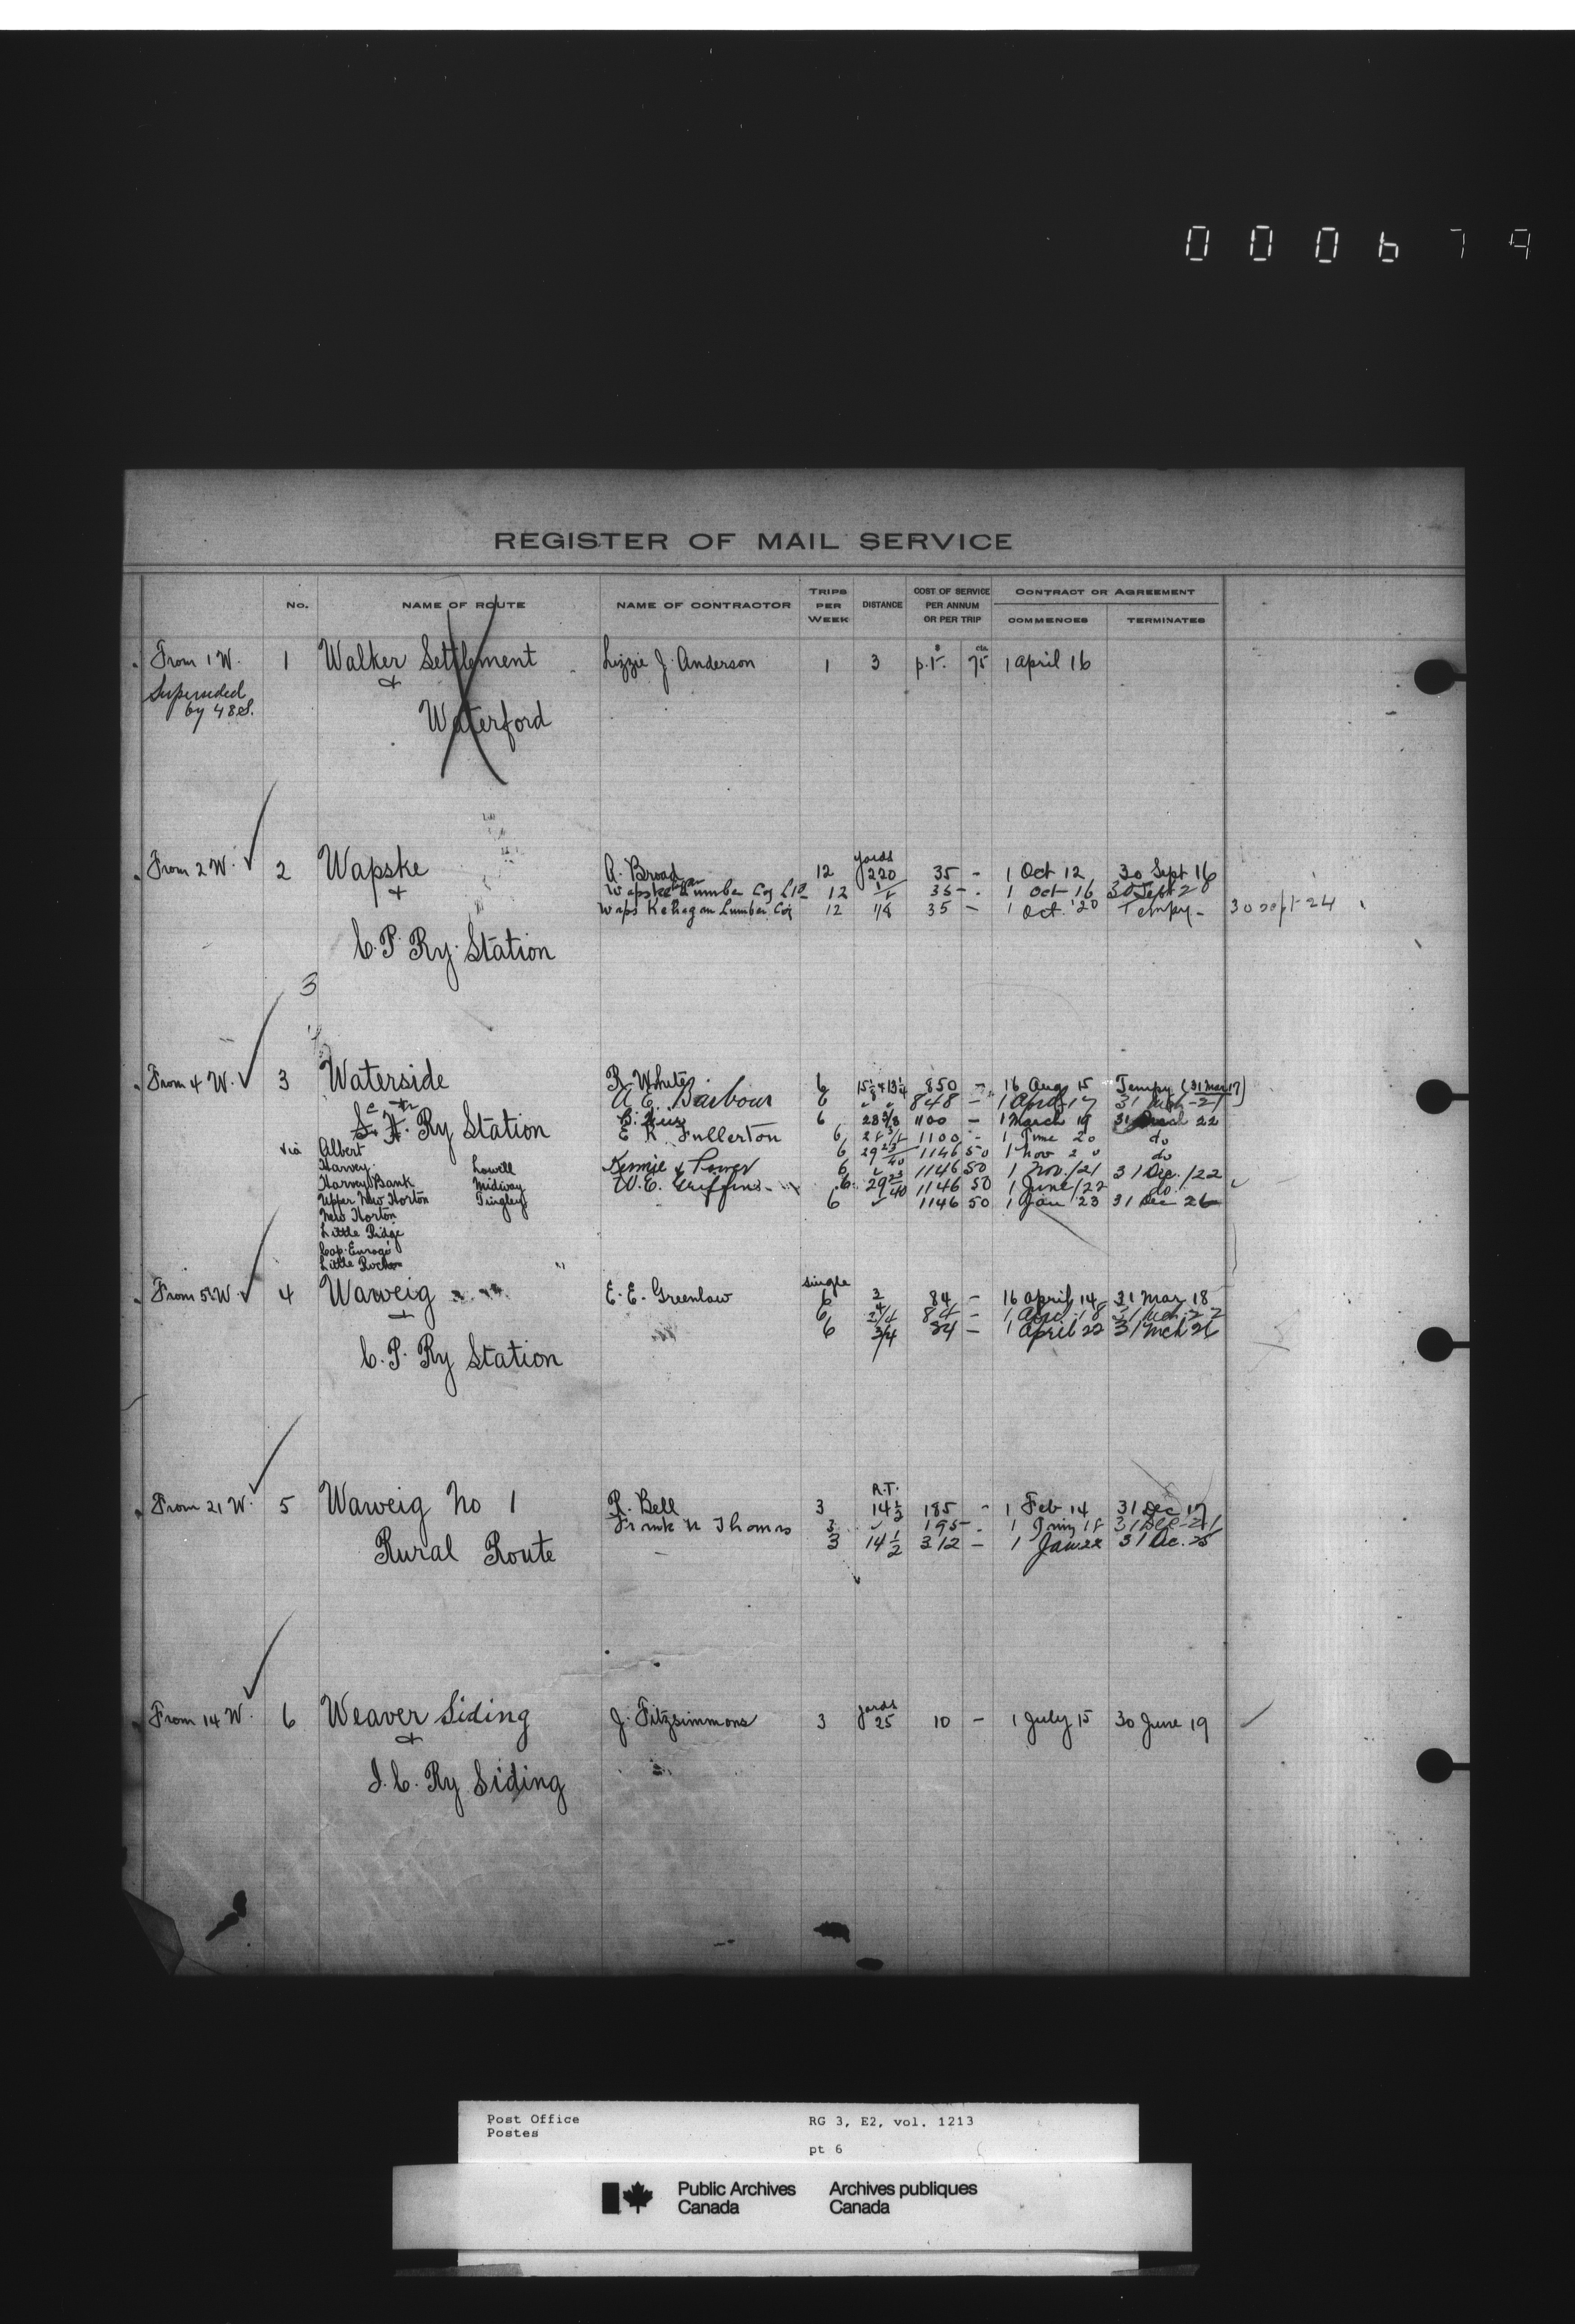 000679
REGISTER OF MAIL SERVICE
No. NAME OF ROUTE NAME OF CONTRACTOR TRIPS PER WEEK DISTANCE COST OF SERVICE PER ANNUM OR PER TRIP CONTRACT OR AGREEMENT COMMENCES TERMINATES
From 1 W. 1 Walker Settlement Lizzie J. Anderson 1 3 p.t. 75 1 April 16
Superseded
by 48 S.
&
Waterford
From 2 W. 2 Wapske A. Broad 12 yards 220 35 - 1 Oct 12 30 Sept 16
& Lumber Coy Ltd 12 1/8 35 - 1 Oct 16 30 Sept 20
Wapskehegan Lumber Coy 12 1/8 35 - 1 Oct. '20 Tempy - 30 Sept 24
C. P. Ry. Station
3
From 4 W. 3 Waterside R. White 6 15 1/8 & 13 1/4 850 - 16 Aug 15 Tempy (31 Mar 17)
& A. E. Barbour 6 " " 848 - 1 April 17 31 Mch - 21
Ry Station 6 28 3/8 1100 - 1 March 19 31 March 22
E. R. Fullerton 6 28 3/8 1100 - 1 June 20 do
via Albert 6 29 23/40 1146 50 1 Nov 20 do
Harvey Lowell Kennie & Power 6 " 1146 50 1 Nov./21 31 Dec./22
Harvey Bank Midway W. E. Griffins 6 29 23/40 1146 50 1 June/22 do
Upper New Horton Tingley 6 " 1146 50 1 Jan 23 31 Dec 26
New Horton
Little Ridge
Cap Enragé
Little Rocher
From 5 W. 4 Waweig E. E. Greenlaw single 6 3/4 84 - 16 April 14 31 Mar 18
& 6 3/4 84 - 1 Apr. 18 31 Mch. 22
6 3/4 84 - 1 April 22 31 Mch 26
C. P. Ry Station
From 21 W. 5 Waweig No 1 R. Bell 3 R.T. 14 1/2 185 - 1 Feb 14 31 Dec 17
Frank N Thomas 3 " 195 - 1 Jany 18 31 Dec - 21
Rural Route 3 14 1/2 312 - 1 Jan 22 31 Dec. 25
From 14 W. 6 Weaver Siding J. Fitzsimmons 3 yards 25 10 - 1 July 15 30 June 19
&
I. C. Ry Siding
Post Office RG 3, E2, vol. 1213
Postes
pt 6
Public Archives Archives publiques
Canada Canada